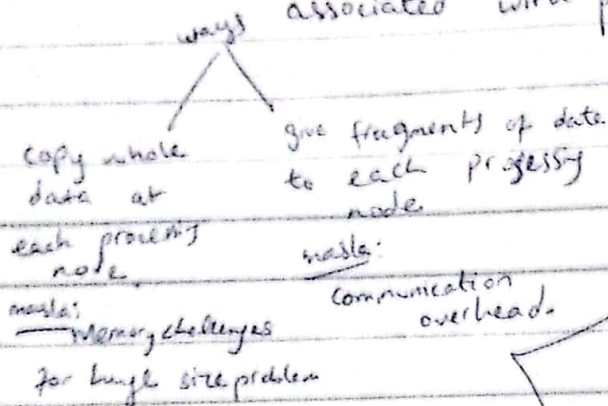 ways associated with
copy whole
data at
each processing
node
masla:
Memory challenges
for hugh size problem
give fragments of data
to each processing
node
masla:
communication
overhead.